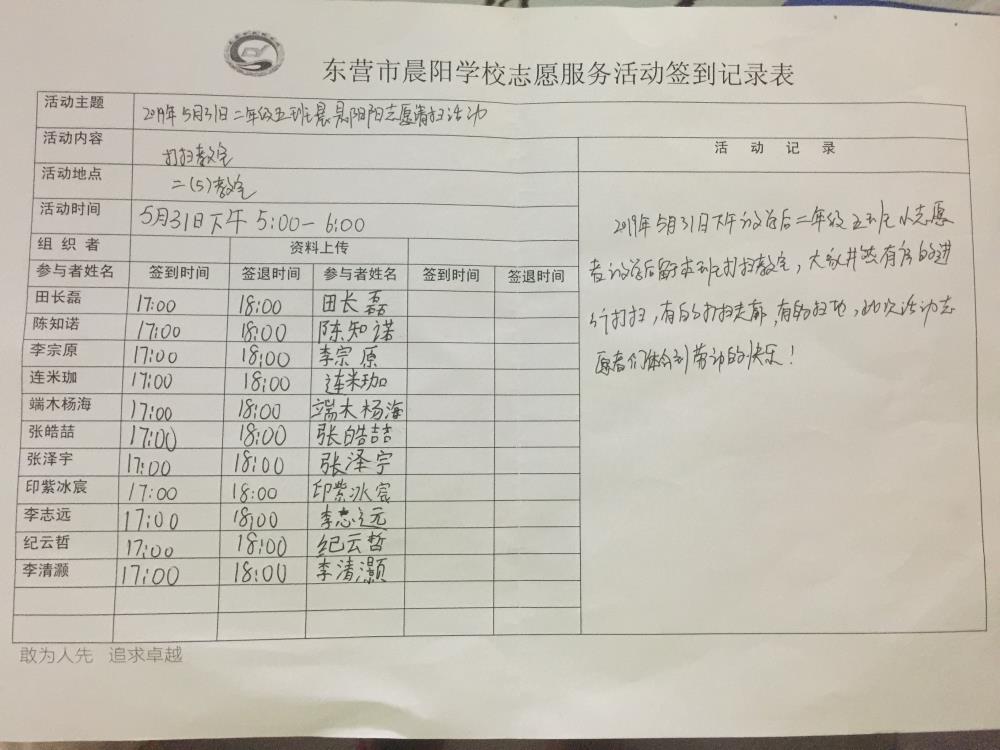 东营市晨阳学校志愿服务活动签到记录表
活动主题 2019年5月31日二年级五班晨晨阳阳志愿清扫活动
活动内容 打扫教室 活动记录
活动地点 二(5)教室
活动时间 5月31日下午 5:00-6:00
组织者 资料上传
参与者姓名 签到时间 签退时间 参与者姓名 签到时间 签退时间
田长磊 17:00 18:00 田长磊
陈知诺 17:00 18:00 陈知诺
李宗原 17:00 18:00 李宗原
连米珈 17:00 18:00 连米珈
端木杨海 17:00 18:00 端木杨海
张皓喆 17:00 18:00 张皓喆
张泽宇 17:00 18:00 张泽宇
印紫冰宸 17:00 18:00 印紫冰宸
李志远 17:00 18:00 李志远
纪云哲 17:00 18:00 纪云哲
李清灏 17:00 18:00 李清灏
2019年5月31日下午放学后二年级五班小志愿
者放学后留在本班打扫教室,大家井然有序的进
行打扫,有的打扫走廊,有的扫地,此次活动志
愿者们体会到劳动的快乐!
敢为人先 追求卓越